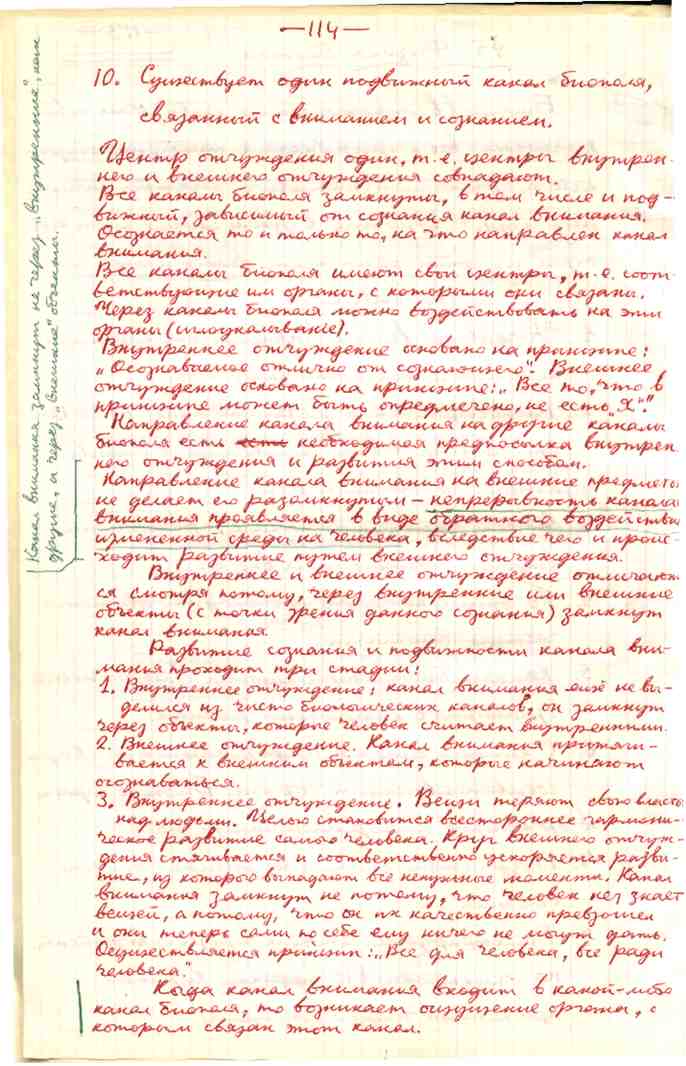 —114—
10. Существует один подвижный канал биополя,
связанный с вниманием и сознанием.
Центр отчуждения один, т.е. центры внутрен-
него и внешнего отчуждения совпадают.
Все каналы биополя замкнуты, в том числе и под-
вижный, зависимый от сознания канал внимания.
Осознается то и только то, на что направлен канал
внимания.
Все каналы биополя имеют свои центры, т.е. соот-
ветствующие им органы, с которыми они связаны.
Через каналы биополя можно воздействовать на эти
органы (иглоукалывание).
Внутреннее отчуждение основано на принципе:
„Осознаваемое отлично от сознающего". Внешнее
отчуждение основано на принципе: „Все то, что в
принципе может быть опредмечено, не есть „Я"."
Направление канала внимания на другие каналы
биополя есть необходимая предпосылка внутрен-
него отчуждения и развития этим способом.
Направление канала внимания на внешние предметы
не делает его разомкнутым — непрерывность канала
внимания проявляется в виде обратного воздействия
измененной среды на человека, вследствие чего и проис-
ходит развитие путем внешнего отчуждения.
Внутреннее и внешнее отчуждение отличают-
ся смотря потому, через внутренние или внешние
объекты (с точки зрения данного сознания) замкнут
канал внимания.
Развитие сознания и подвижности канала вни-
мания проходит три стадии:
1. Внутреннее отчуждение: канал внимания ещё не вы-
делился из чисто биологических каналов, он замкнут
через объекты, которые человек считает внутренними.
2. Внешнее отчуждение. Канал внимания притяги-
вается к внешним объектам, которые начинают
осознаваться.
3. Внутреннее отчуждение. Вещи теряют свою власть
над людьми. Целью становится всестороннее гармони-
ческое развитие самого человека. Круг внешнего отчуж-
дения стягивается и соответственно ускоряется разви-
тие, из которого выпадают все ненужные моменты. Канал
внимания замкнут не потому, что человек не знает
вещей, а потому, что он их качественно превзошел
и они теперь сами по себе ему ничего не могут дать.
Осуществляется принцип: „Все для человека, все ради
человека."
Когда канал внимания входит в какой-либо
канал биополя, то возникает ощущение органа, с
которым связан этот канал.
Канал внимания замкнут не через „внутренние", как
другие, а через „внешние" объекты.